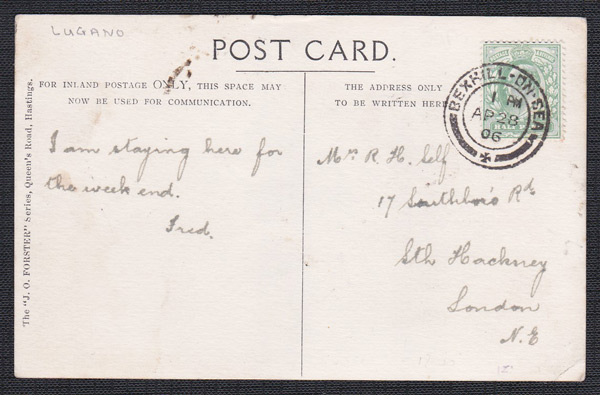 LUGANO
POST CARD.
FOR INLAND POSTAGE ONLY, THIS SPACE MAY
NOW BE USED FOR COMMUNICATION.
THE ADDRESS ONLY
TO BE WRITTEN HERE
BEXHILL-ON-SEA
PM
AP 28
06
HALF
I am staying here for
the week end.
Fred.
Mr R. H. Self
17 Southboro' Rd
Sth Hackney
London
N.E
The "J. O. FORSTER" Series, Queen's Road, Hastings.